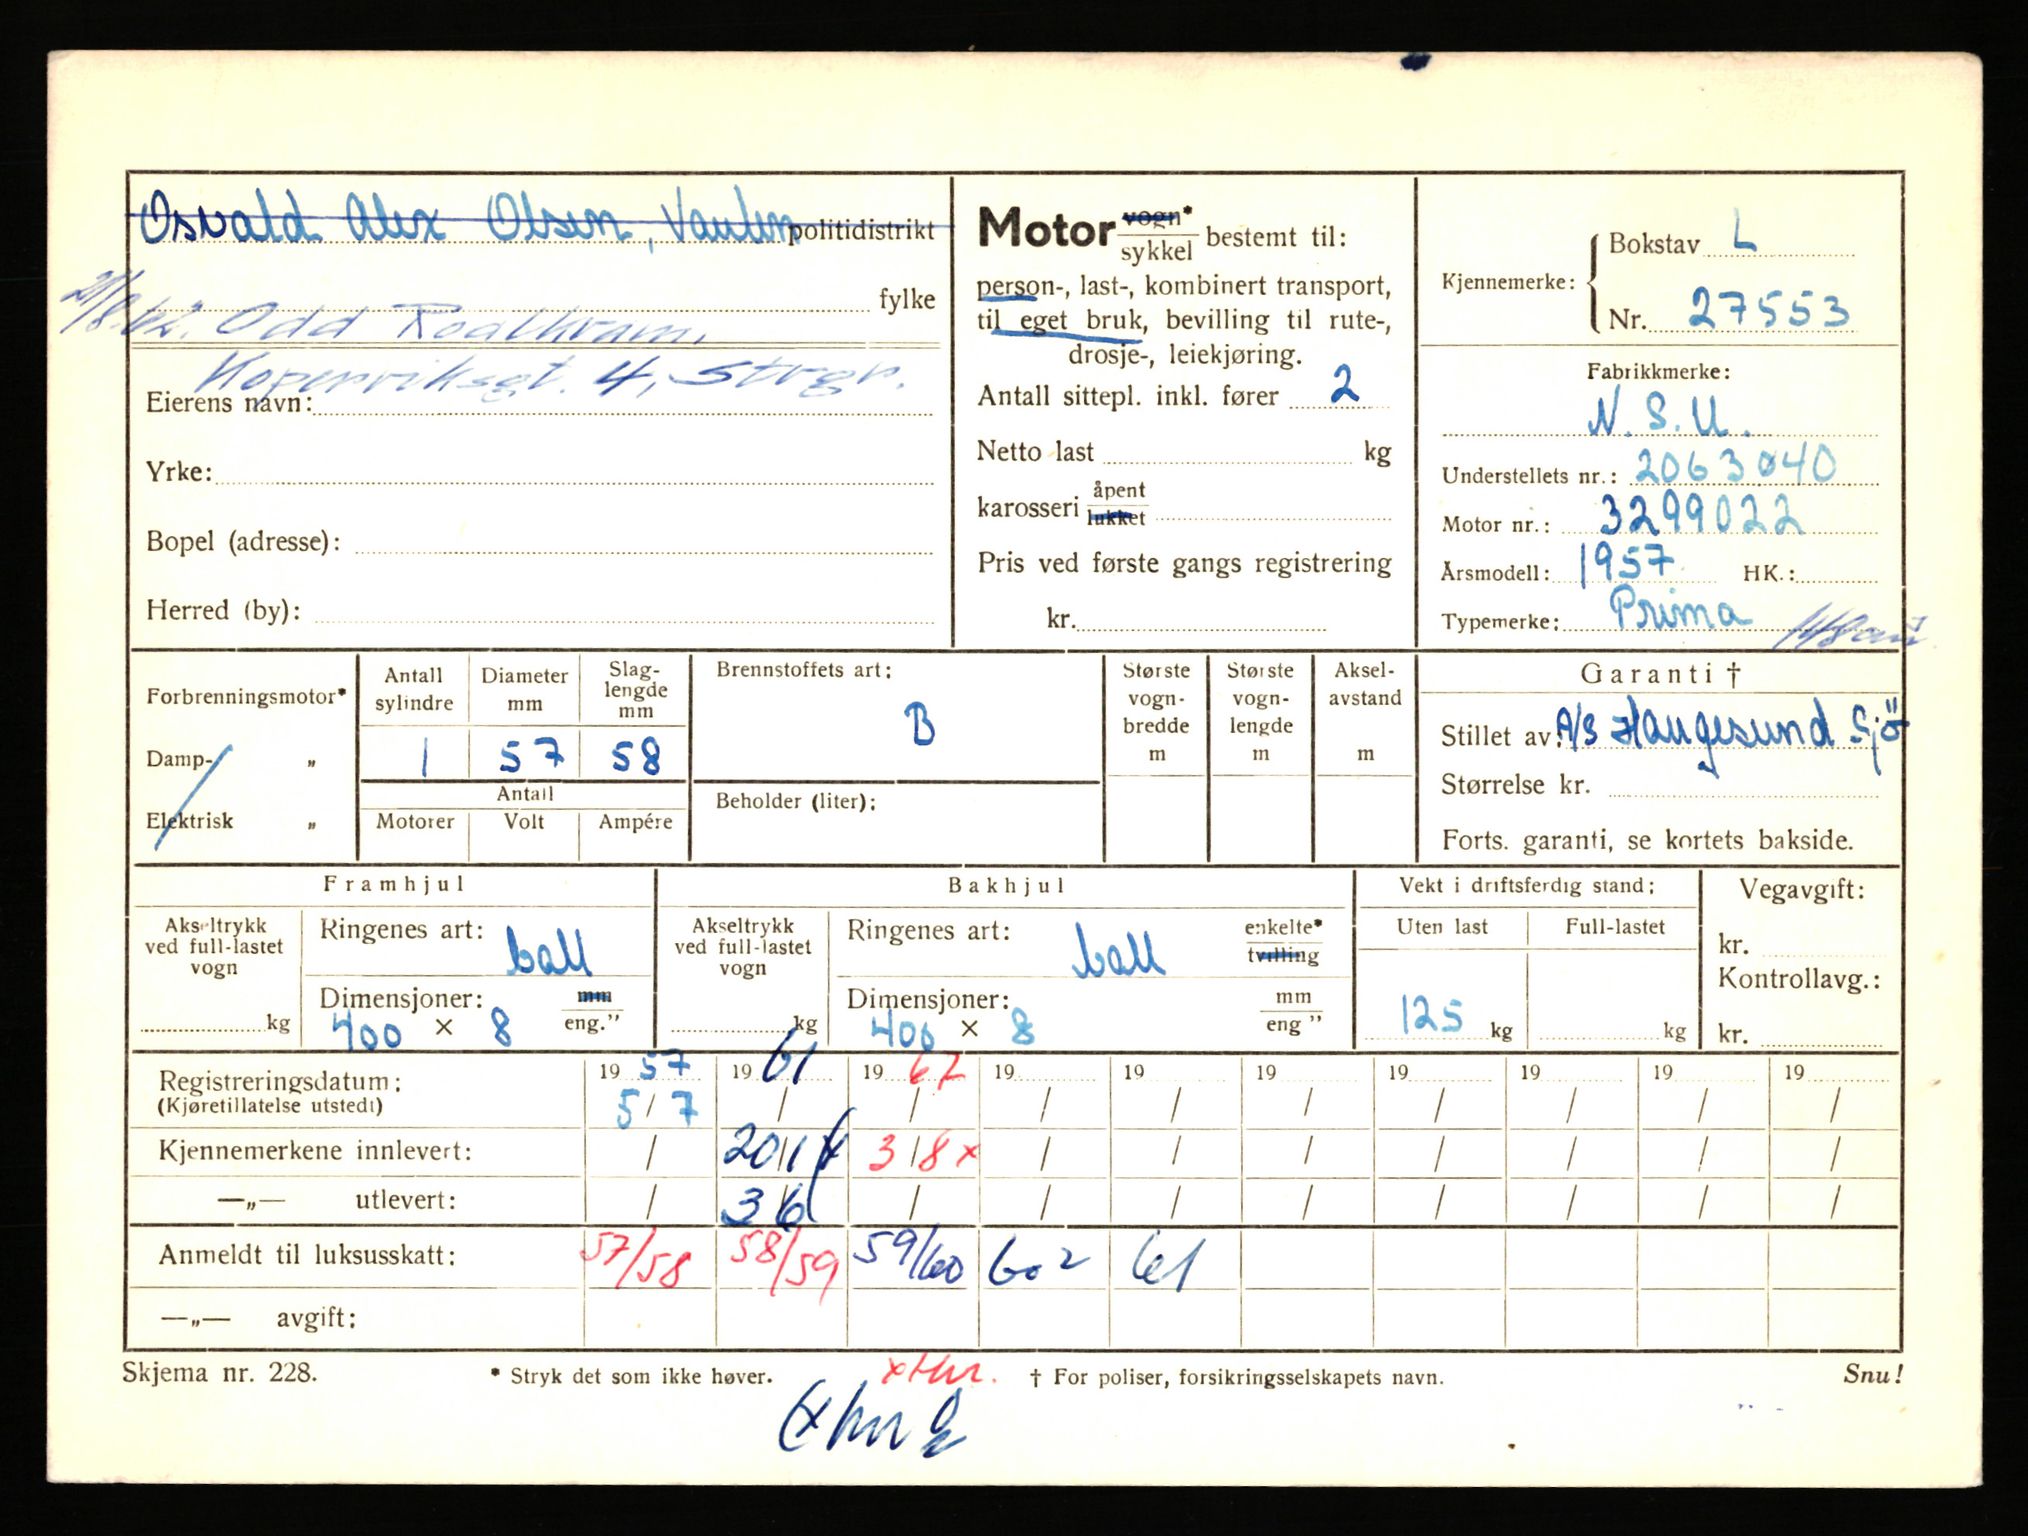 Osvald Alex Olsen, Vaulen politidistrikt
21/8.62. Odd Roalkvam, fylke
Koperviksgt. 4, Strgr.
Eierens navn:
Yrke:
Bopel (adresse):
Herred (by):
Motor vogn* sykkel bestemt til:
person-, last-, kombinert transport,
til eget bruk, bevilling til rute-,
drosje-, leiekjøring.
Antall sittepl. inkl. fører 2
Netto last kg
karosseri åpent lukket
Pris ved første gangs registrering
kr.
Kjennemerke: Bokstav L
Nr. 27553
Fabrikkmerke:
N.S.U.
Understellets nr.: 2063040
Motor nr.: 3299022
Årsmodell: 1957 HK.:
Typemerke: Prima
Forbrenningsmotor*
Damp- „
Elektrisk „
Antall sylindre
Diameter mm
Slag-lengde mm
1 57 58
Antall
Motorer Volt Ampére
Brennstoffets art:
B
Beholder (liter):
Største vogn-bredde m
Største vogn-lengde m
Aksel-avstand m
Garanti †
Stillet av: A/S Haugesund Sjö
Størrelse kr.
Forts. garanti, se kortets bakside.
Framhjul
Akseltrykk ved full-lastet vogn
kg
Ringenes art: ball
Dimensjoner: mm
400 × 8 eng.”
Bakhjul
Akseltrykk ved full-lastet vogn
kg
Ringenes art: ball enkelte* tvilling
Dimensjoner: mm
400 × 8 eng ”
Vekt i driftsferdig stand:
Uten last Full-lastet
125 kg kg
Vegavgift:
kr.
Kontrollavg.:
kr.
Registreringsdatum: 19 57 19 61 19 62 19 19 19 19 19 19 19
(Kjøretillatelse utstedt) 5/7 / / / / / / / / /
Kjennemerkene innlevert: / 20/1 x 3/8 x / / / / / / /
—„— utlevert: / 3/6 / / / / / / / /
Anmeldt til luksusskatt: 57/58 58/59 59/60 60 2 61
—„— avgift:
Skjema nr. 228.
* Stryk det som ikke høver.
† For poliser, forsikringsselskapets navn.
Snu!